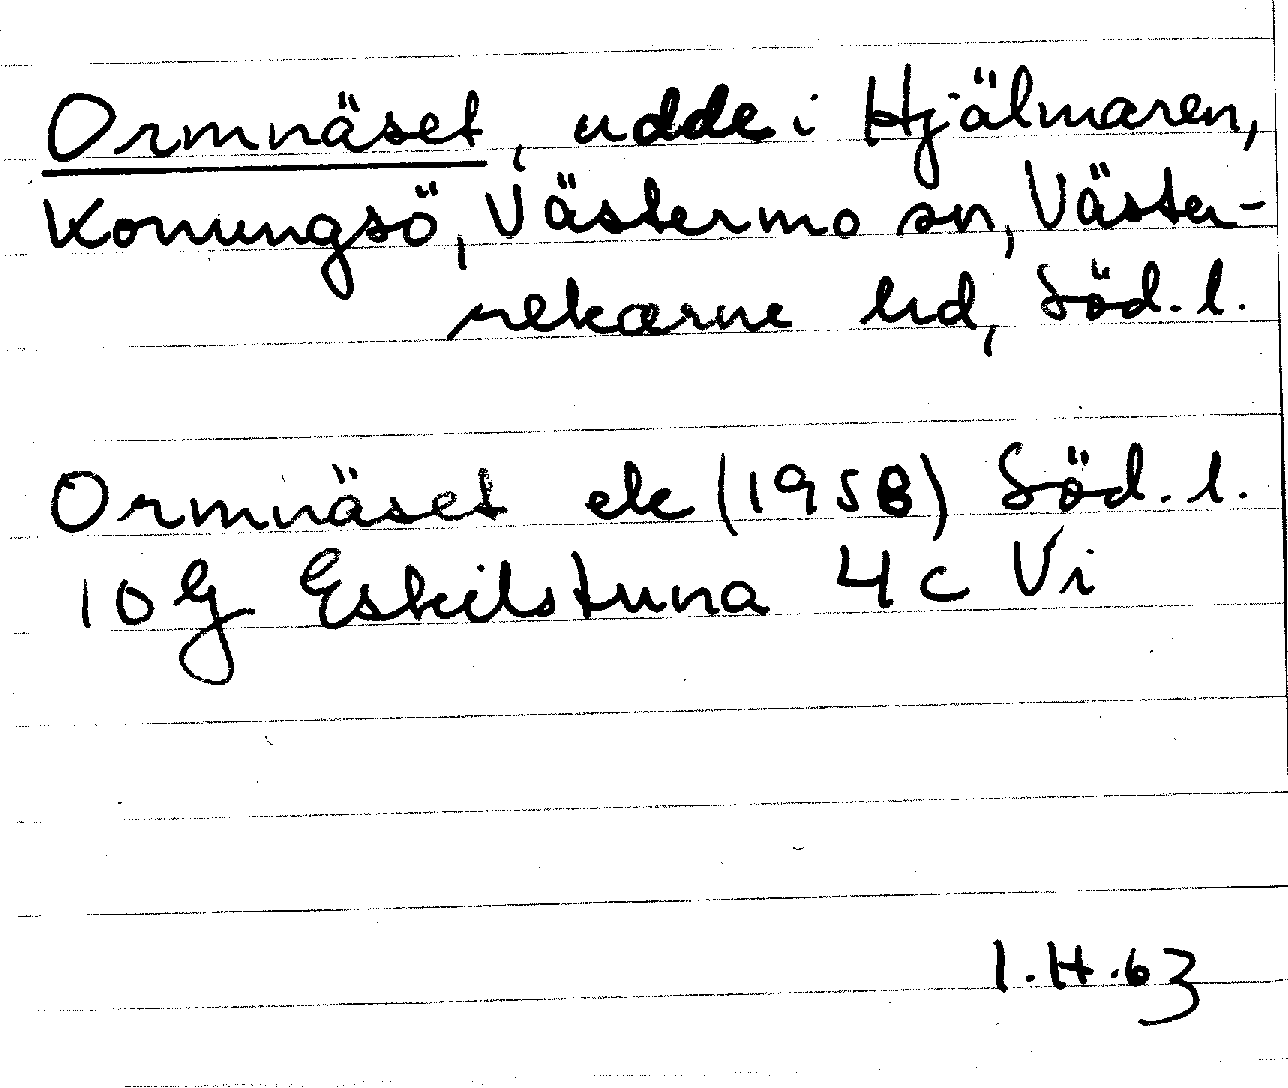 Ormnäset, udde i Hjälmaren,
Konungsö, Västermo sn, Väster-
rekarne hd, Söd.l.
Ormnäset ek (1958) Söd.l.
10G Eskilstuna 4c Vi
I.H.63